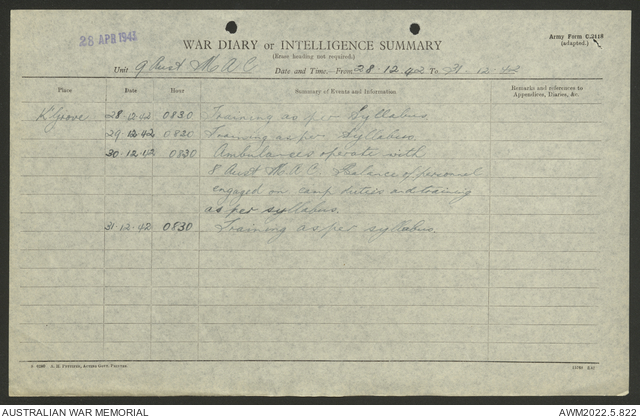 28 APR 1943
Army Form C.2118
(adapted.)
WAR DIARY or INTELLIGENCE SUMMARY
(Erase heading not required.)
Unit 9 Aust M A C Date and Time—From 28.12.42 To 31.12.42
Place Date Hour Summary of Events and Information Remarks and references to
Appendices, Diaries, &c.
K'Grove 28.12.42 0830 Training as per Syllabus.
29.12.42 0830 Training as per Syllabus.
30.12.42 0830 Ambulances operate with
8 Aust M A C Balance of personnel
engaged on camp duties and training
as per syllabus.
31.12.42 0830 Training as per syllabus.
A. H. Pettifer, Acting Govt. Printer.
AUSTRALIAN WAR MEMORIAL AWM2022.5.822